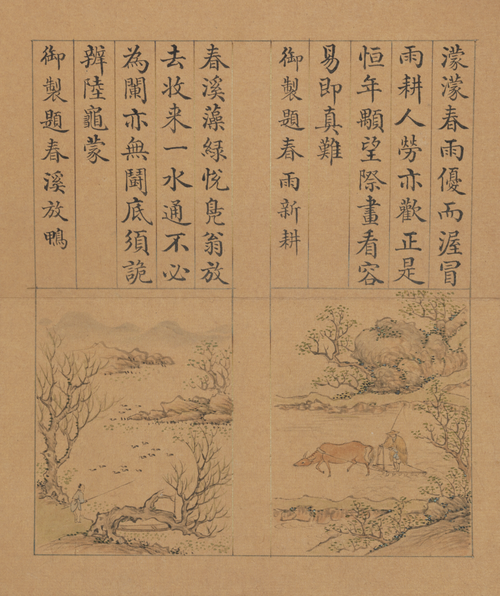 濛濛春雨優而渥冒
雨耕人勞亦歡正是
恒年顒望際畫看容
易即真難
御製題春雨新耕
春溪藻綠悅鳧翁放
去收来一水通不必
為闌亦無鬭底須詭
辨陸龜蒙
御製題春溪放鴨